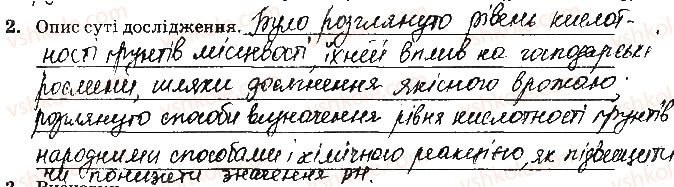 2. Опис суті дослідження. Було розглянуто рівень кислот-
ності ґрунтів місцевості, їхній вплив на господарські
рослини, шляхи досягнення якісного врожаю,
розглянуто способи визначення рівня кислотності ґрунтів
народними способами і хімічного реакцією, як підвищити
чи понизити значення рН.